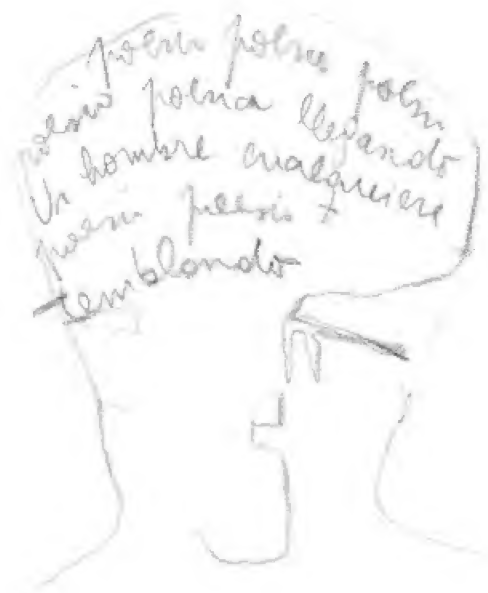 poesia poesia poesia
poesia poesia llegando
Un hombre cualquiera
poesia poesia y
temblando